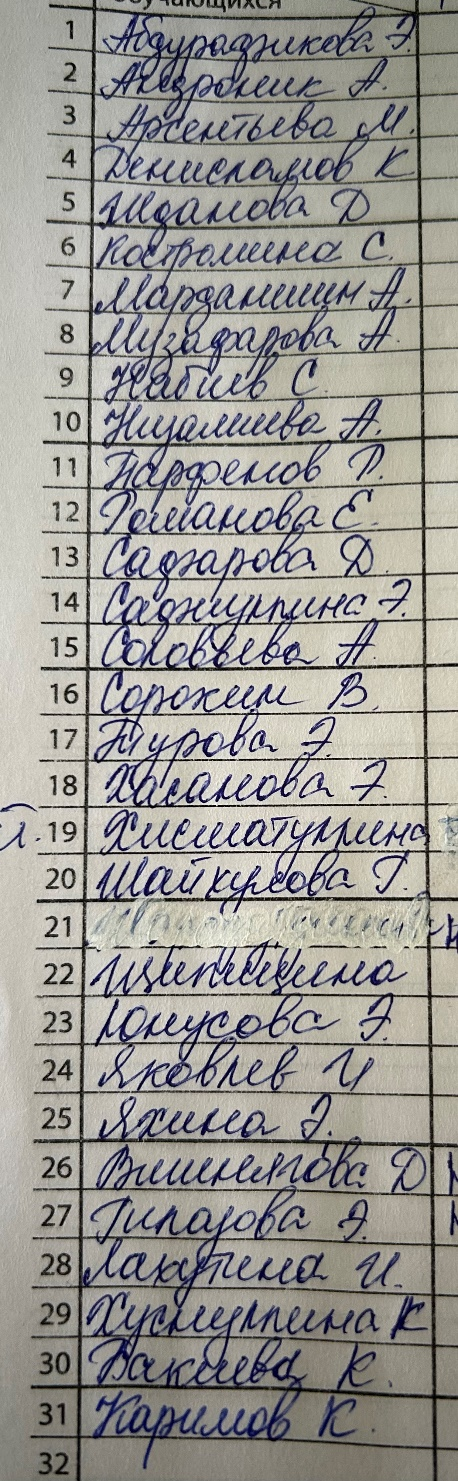 обучающихся
1 Абдуразакова Э.
2 Андроник А.
3 Арсентьева М.
4 Денисламов К
5 Жданова Д
6 Костромина С.
7 Марданшин А.
8 Музафарова А.
9 Набиев С.
10 Низамиева А.
11 Парфенов Р.
12 Романова Е.
13 Садзарова Д.
14 Саджиуллина Э.
15 Соловьева А.
16 Сорокин В.
17 Турова Э.
18 Хасанова Э.
19 Хисматуллина
20 Шайкулова Г.
21
22 Щипицина
23 Юнусова Э.
24 Яковлев И
25 Яхина Э.
26 Вишнякова Д
27 Гилазова Э.
28 Лакупина И.
29 Хуснуллина К
30 Вакиева К.
31 Каримов К.
32